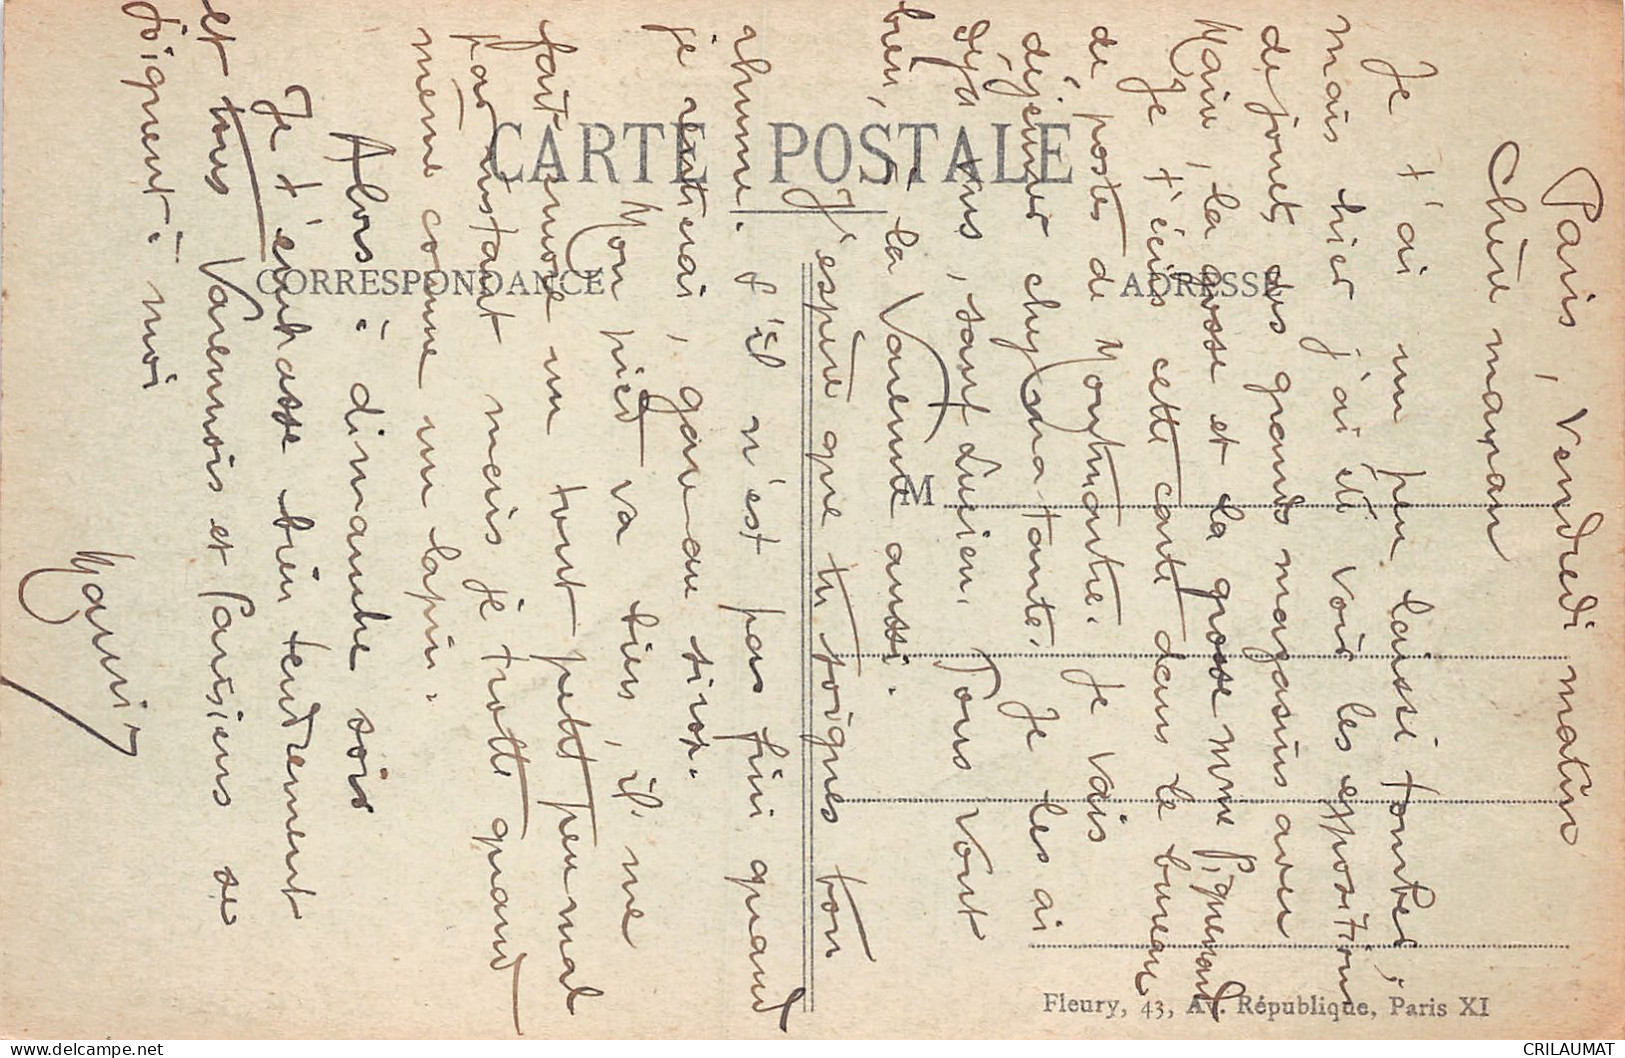 CARTE POSTALE
CORRESPONDANCE
ADRESSE
M
Fleury, 43, Av. République, Paris XI
Paris, Vendredi matin
Chère maman
Je t'ai un peu laissé tomber,
mais hier j'ai été voir les expositions
de jouets des grands magasins avec
Main, la gosse et la grosse Mme Piguenard
Je t'écris cette carte dans le bureau
de postes de Montmartre. Je vais
déjeuner chez ma tante. Je les ai
déjà vus, sauf Lucien. Tous vont
bien, à la Varenne aussi.
J'espère que tu soignes ton
rhume. S'il n'est pas fini quand
je rentrerai, gare au sirop.
Mon pied va bien, il me
fait encore un tout petit peu mal
par instant mais je trotte quand
même comme un lapin.
Alors à dimanche soir
Je t'embrasse bien tendrement
et tous Varennois et Parisiens se
joignent à moi